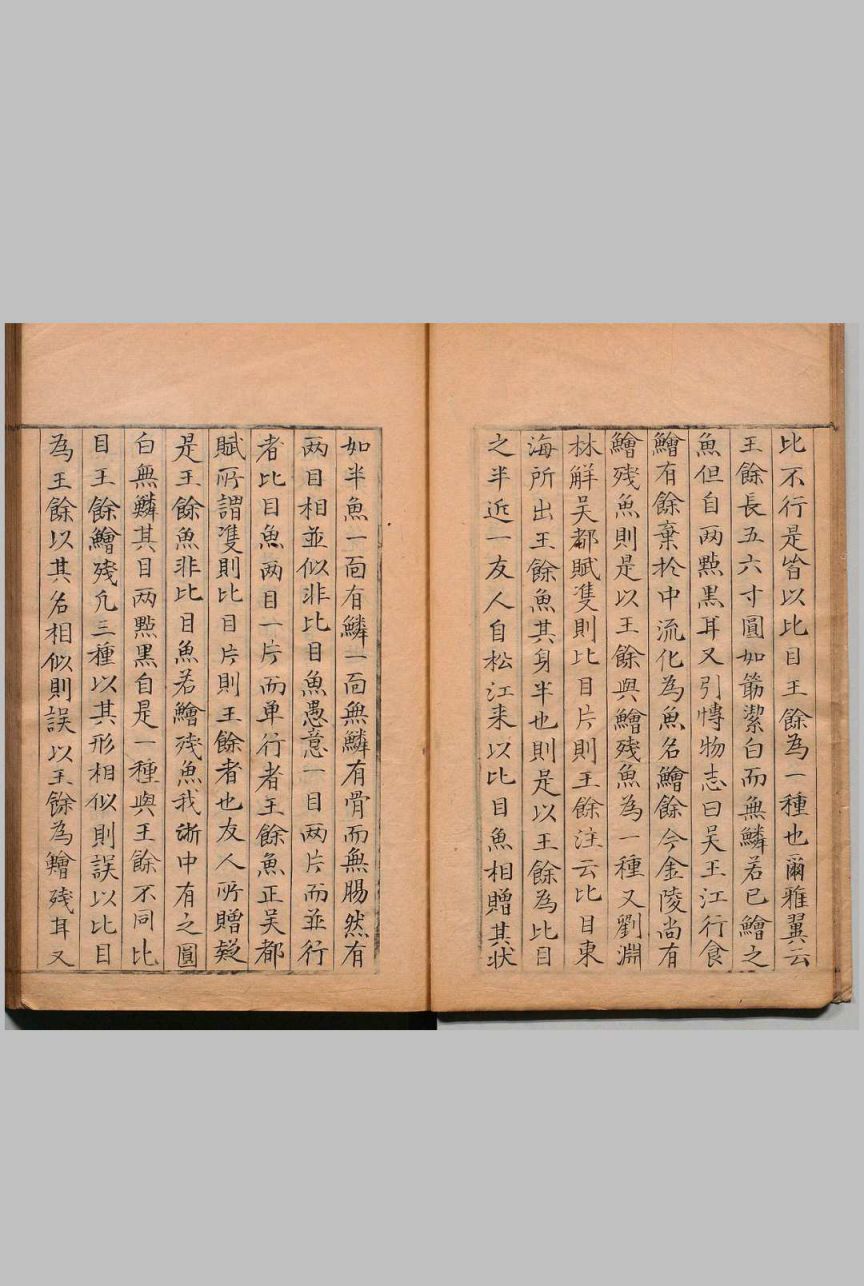 比不行是皆以比目王餘為一種也爾雅翼云
王餘長五六寸圓如筯潔白而無鱗若已鱠之
魚但自两㸃黒耳又引愽物志曰吴王江行食
鱠有餘棄扵中流化為魚名鱠餘今金陵尚有
鱠殘魚則是以王餘與鱠殘魚為一種又劉淵
林觧吴都賦䨇則比目片則王餘注云比目東
海所出王餘魚其身半也則是以王餘為比目
之半近一友人自松江来以比目魚相贈其状
如半魚一面有鱗一面無鱗有骨而無腸然有
两目相並似非比目魚愚意一目两片而並行
者比目魚两目一片而单行者王餘魚正吴都
賦所謂䨇則比目片則王餘者也友人所贈疑
是王餘魚非比目魚若鱠殘魚我浙中有之圓
白無鱗其目两㸃黒自是一種與王餘不同比
目王餘鱠殘凢三種以其形相似則誤以比目
為王餘以其名相似則誤以王餘為鱠殘耳又